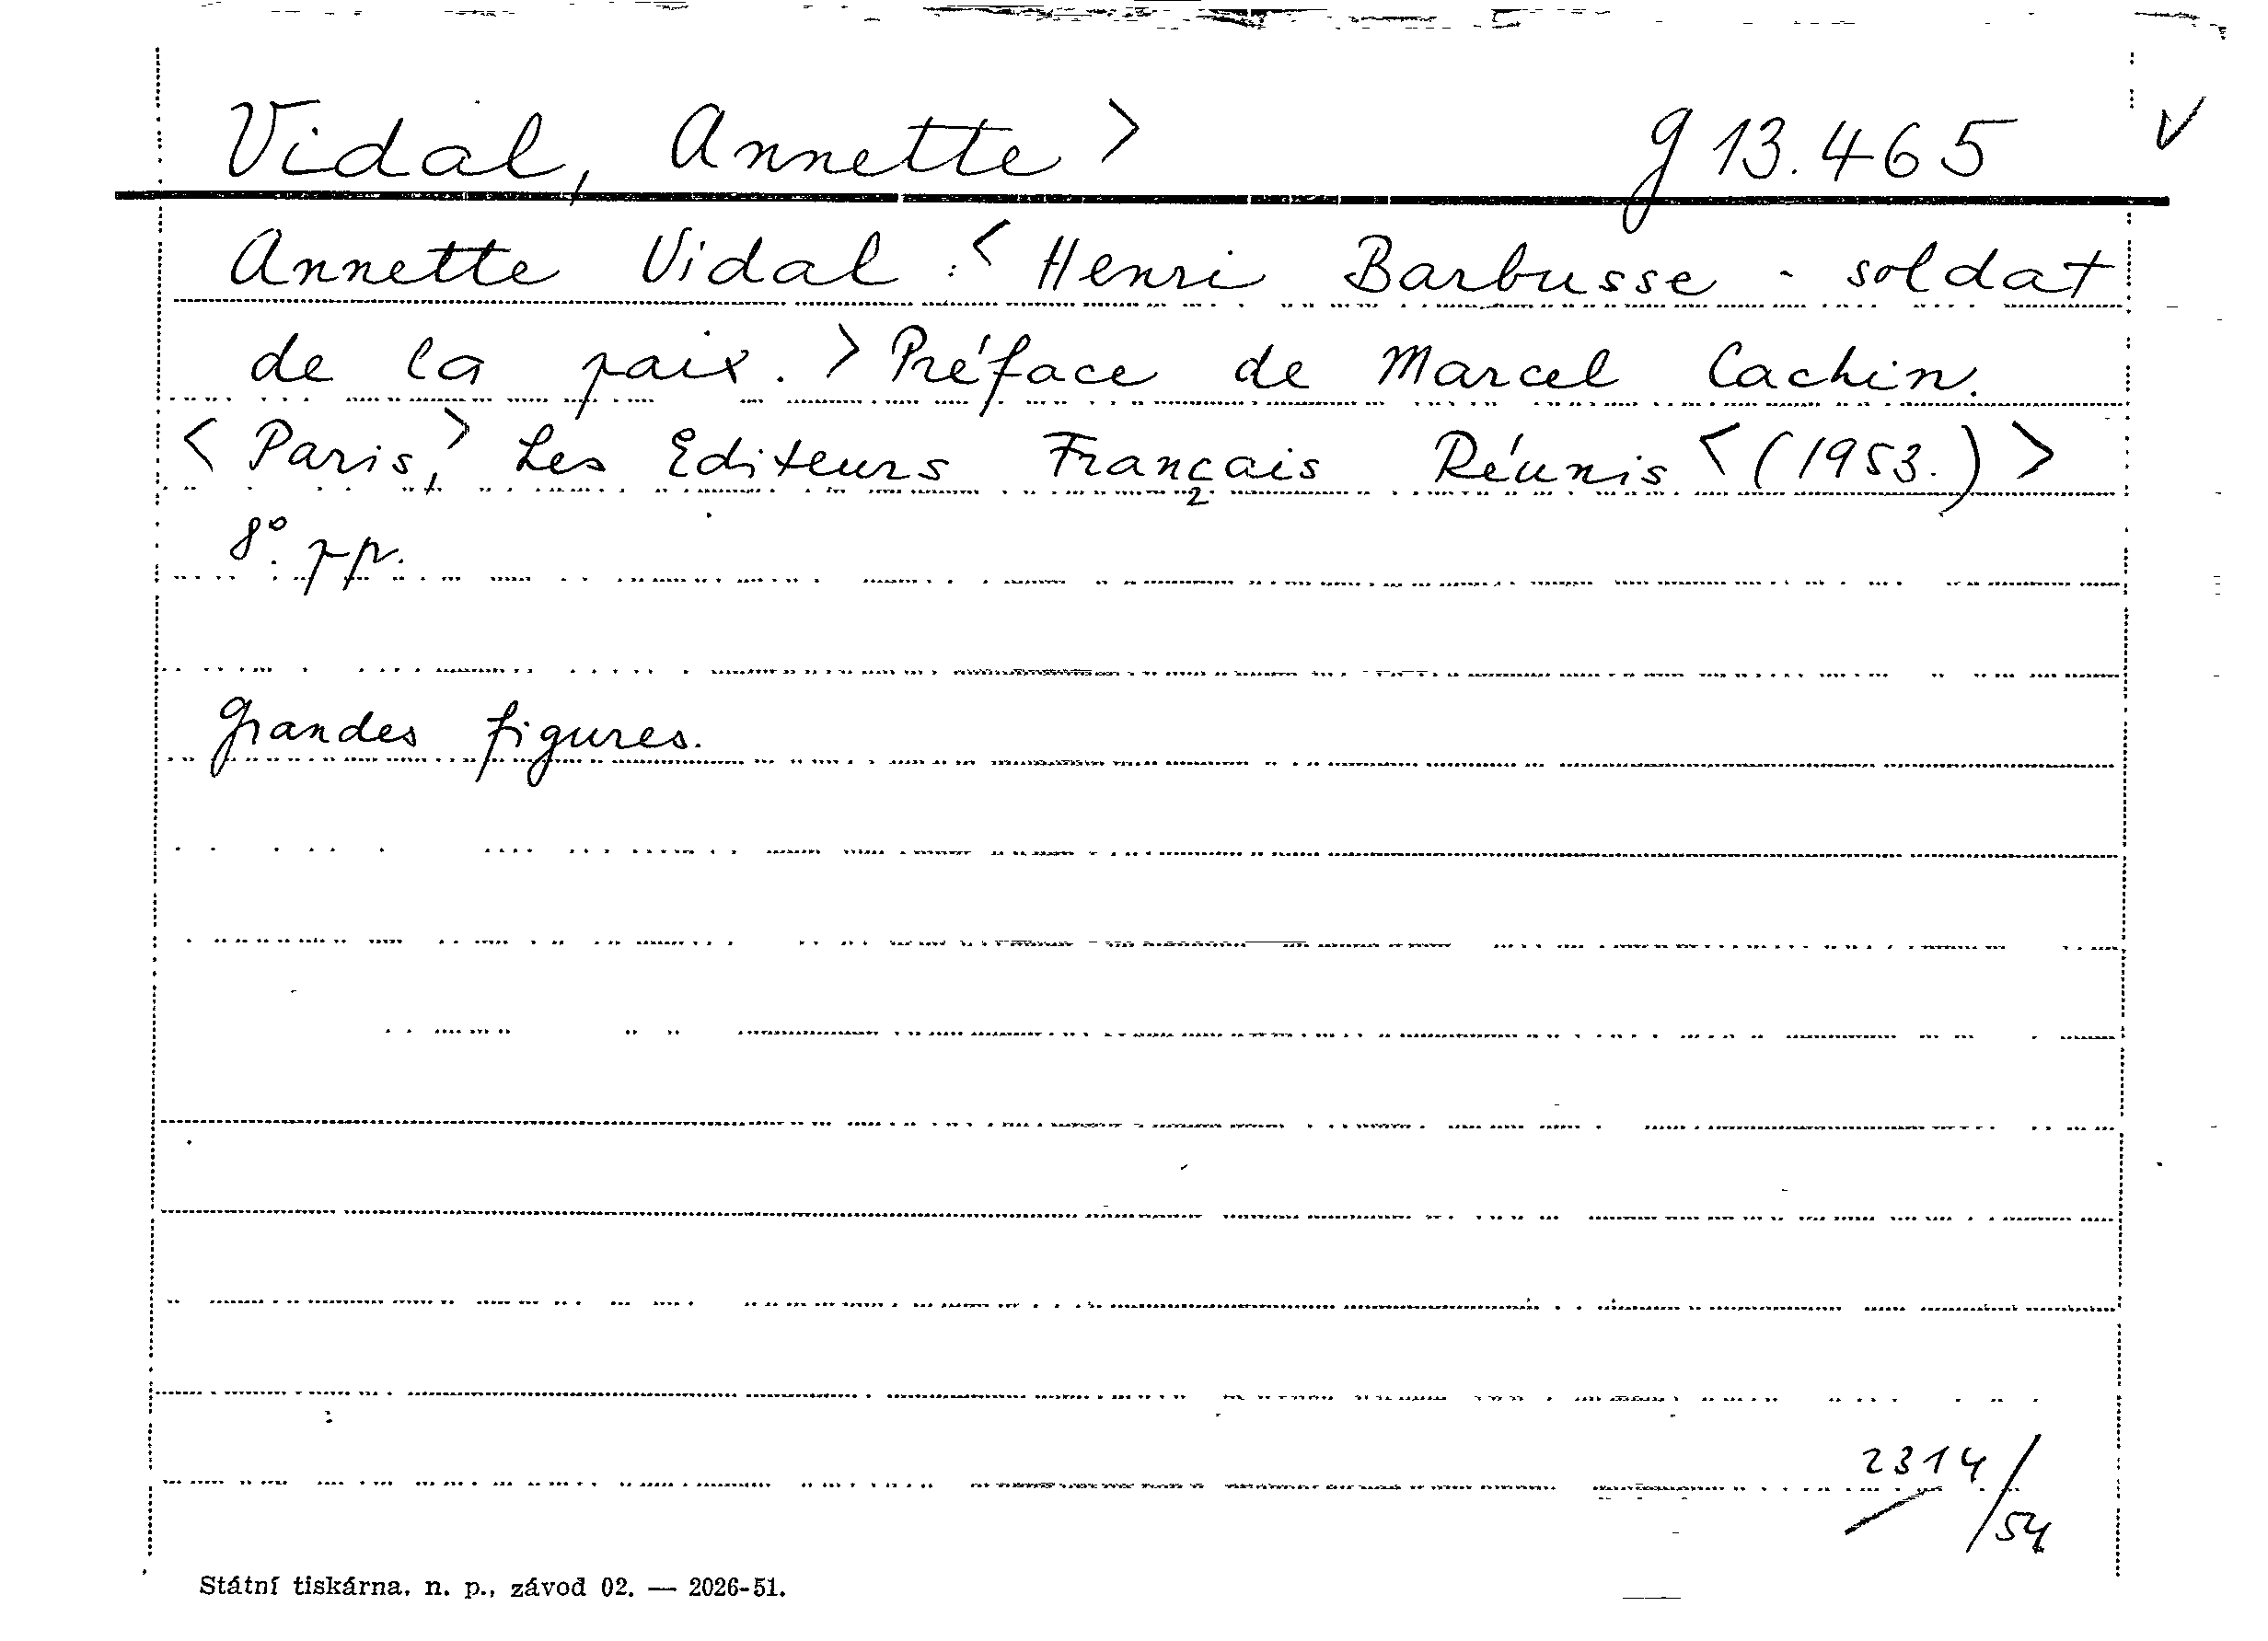 Vidal, Annette > g 13.465 V
Annette Vidal : < Henri Barbusse - soldat
de la paix. > Préface de Marcel Cachin.
< Paris, > Les Editeurs Français Réunis < (1953.) >
8°. pp.
Grandes figures.
2314/54
Státní tiskárna, n. p., závod 02. — 2026-51.